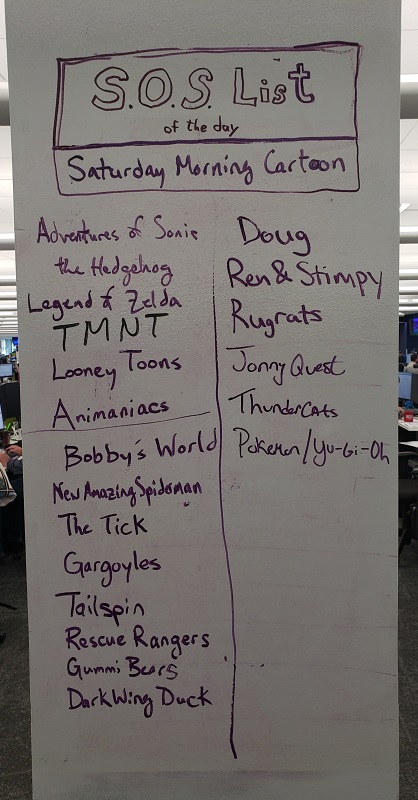 S.O.S. List
of the day
Saturday Morning Cartoon
Adventures of Sonic
the Hedgehog
Legend of Zelda
TMNT
Looney Toons
Animaniacs
Bobby's World
New Amazing Spiderman
The Tick
Gargoyles
Tailspin
Rescue Rangers
Gummi Bears
DarkWing Duck
Doug
Ren & Stimpy
Rugrats
Jonny Quest
ThunderCats
Pokemon/Yu-Gi-Oh